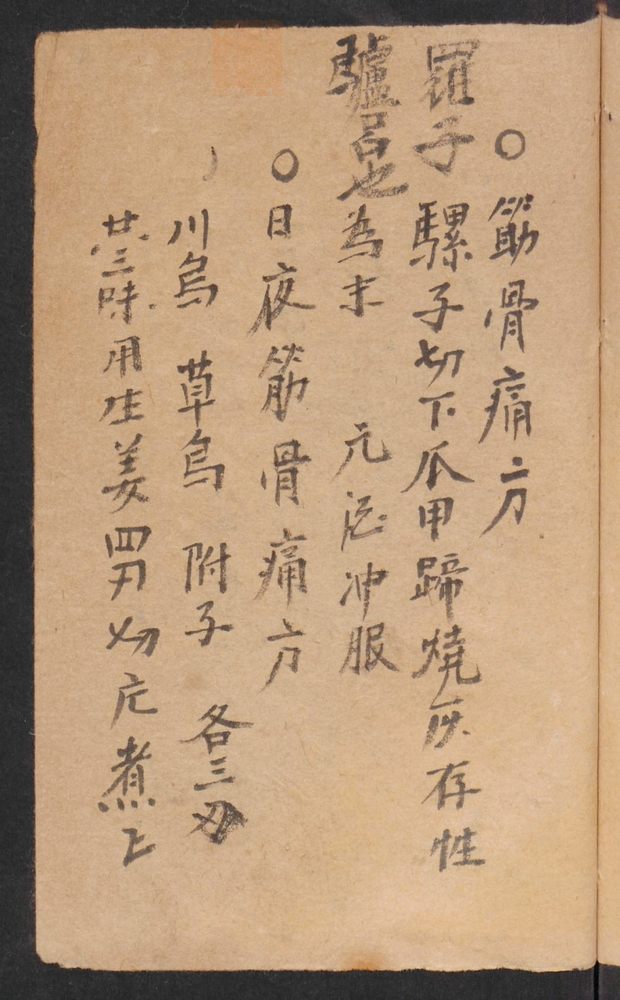 ○筋骨痛方
羅子 騾子切下爪甲蹄燒灰存性
驢 也 為末 元酒冲服
○日夜筋骨痛方
川烏 草烏 附子 各三刄
共三味用生姜四刄切片煮上